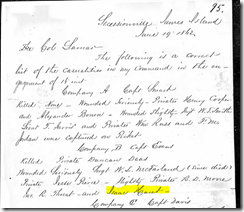 95.
Secessionville James Island
June 19th 1862
The Col Lamar
The following is a correct
list of the casualties in my command in the en-
gagement of 16 inst.
Company A Capt
Killed. None - Wounded Seriously - Private Henry Cooper
and Alexander Bowen - Wounded Slightly -
and
was captured on Picket
Company B Capt Evans
Killed Private Duncan Deas
Wounded Seriously Sergt W. D. McFarland (since died)
Private Slightly - Private B. D. Moore
and Isaac Grant -
Company C Capt Davis